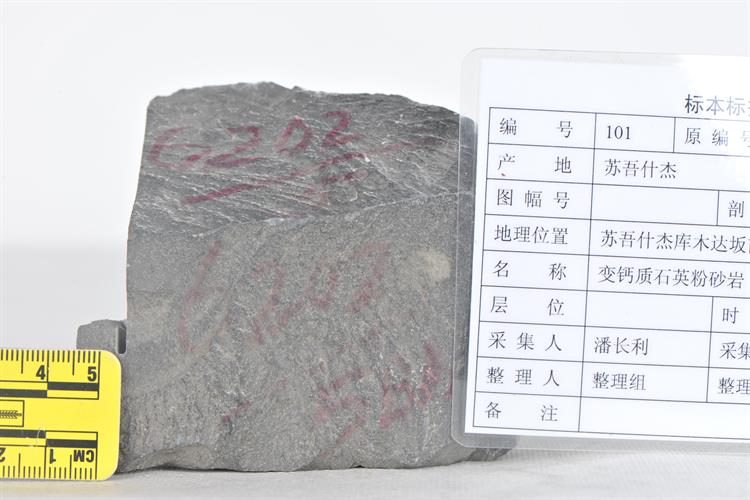 标本标
编 号 101 原 编 号
产 地 苏吾什杰
图幅号 剖
地理位置 苏吾什杰库木达坂
名 称 变钙质石英粉砂岩
层 位 时
采集人 潘长利 采集
整理人 整理组 整理
备 注
6202
6202
4 5
1 CM